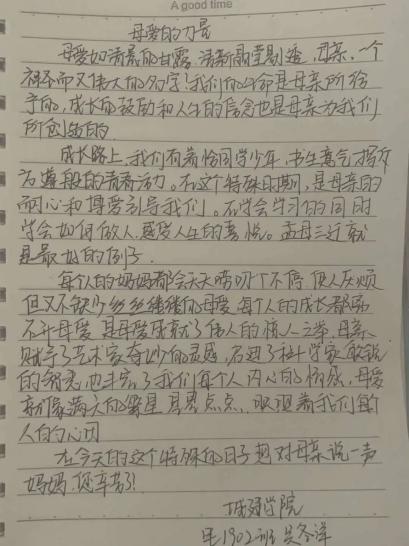 A good time
母爱的力量
母爱如清晨的甘露,清新晶莹剔透,母亲,一个
神圣而又伟大的名字!我们的生命是母亲所给
予的,成长的鼓励和人生的信念也是母亲为我们
所创造的.
成长路上,我们有着恰同学少年,书生意气,挥斥
方遒般的青春活力。在这个特殊时期,是母亲的
耐心和厚爱引导我们。在学会学习的同时
学会如何做人,感受人生的喜悦。孟母三迁就
是最好的例子.
每个人的妈妈都会天天唠叨个不停,使人厌烦
但又不缺少丝丝缕缕的母爱,每个人的成长都离
不开母爱,是母爱成就了伟人的惊人之举,母亲
赋予了艺术家奇妙的灵感,启迪了科学家敏锐
的智慧,也丰富了我们每个人内心的情感,母爱
就像满天的繁星,星星点点,照耀着我们每
人的心田
在今天的这个特殊的日子想对母亲说一声
妈妈,您辛苦了!
城建学院
1902班